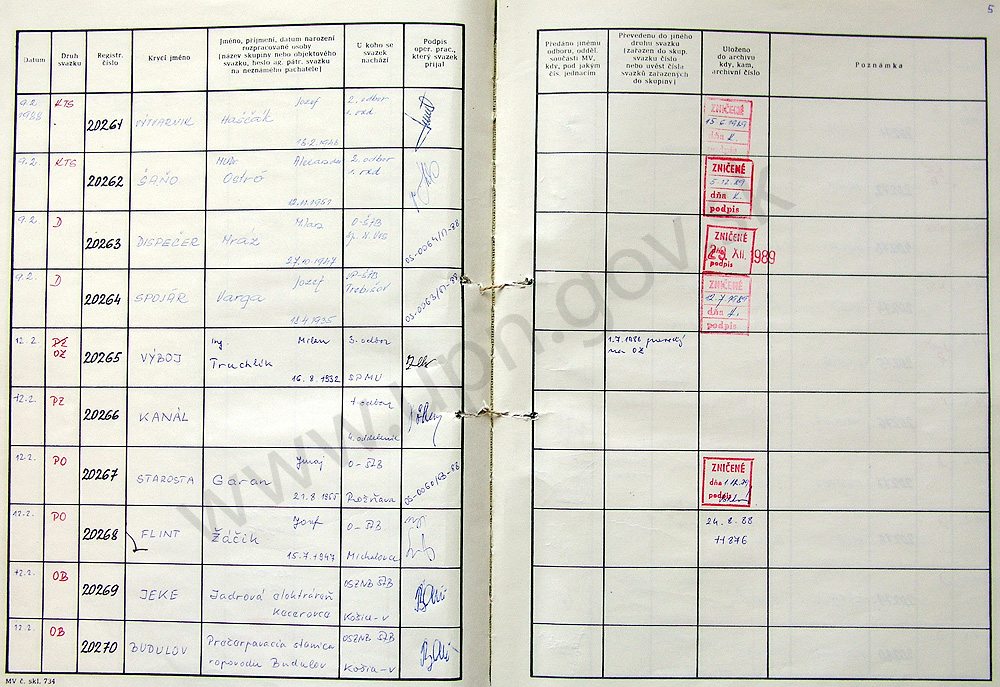 5
Datum
Druh svazku
Registr. číslo
Krycí jméno
Jméno, příjmení, datum narození rozpracované osoby (název skupiny nebo objektového svazku, heslo ag. pátr. svazku na neznámého pachatele)
U koho se svazek nachází
Podpis oper. prac., který svazek přijal
Předáno jinému odboru, odděl. součásti MV, kdy, pod jakým čís. jednacím
Převedeno do jiného druhu svazku (zařazen do skup. svazku číslo nebo uvést čísla svazků zařazených do skupiny)
Uloženo do archivu kdy, kam, archivní číslo
Poznámka
9.2. 1988 KTS 20261 VÝTVARNÍK Jozef Haščák 2. odbor
ZNIČENÉ 15.6.1989 dňa podpis
9.2. KTS 20262 ŠAŇO MUDr Alexander Ostró 2. odbor
ZNIČENÉ 5.12.89 dňa podpis
9.2. D 20263 DISPEČER Milan Mráz 27.10.1947 O-ŠtB Sp. N. Ves
ZNIČENÉ 29. XII. 1989 podpis
9.2. D 20264 SPOJÁR Jozef Varga 18.4.1935 Trebišov
ZNIČENÉ 12.7.1989 dňa podpis
12.2. OZ 20265 VÝBOJ Ing. Milan Truchlík 16.8.1932 3. odbor SPMU
1.7.1988 na OZ
12.2. PZ 20266 KANÁL 1 odbor 4. oddelenie
12.2. PO 20267 STAROSTA Juraj Garan O-ŠtB Rožňava
ZNIČENÉ dňa podpis
12.2. PO 20268 FLINT Jozef Žáčik 15.7.1947 O-ŠtB Michalovce
24.8.88
11876
12.2. OB 20269 JEKE Jadrová elektráreň Kecerovce OSZNB ŠtB Košice-v
12.2. OB 20270 BUDULOV Prečerpávacia stanica ropovodu Budulov OSZNB ŠtB Košice-v
MV č. skl. 734
www.upn.gov.sk